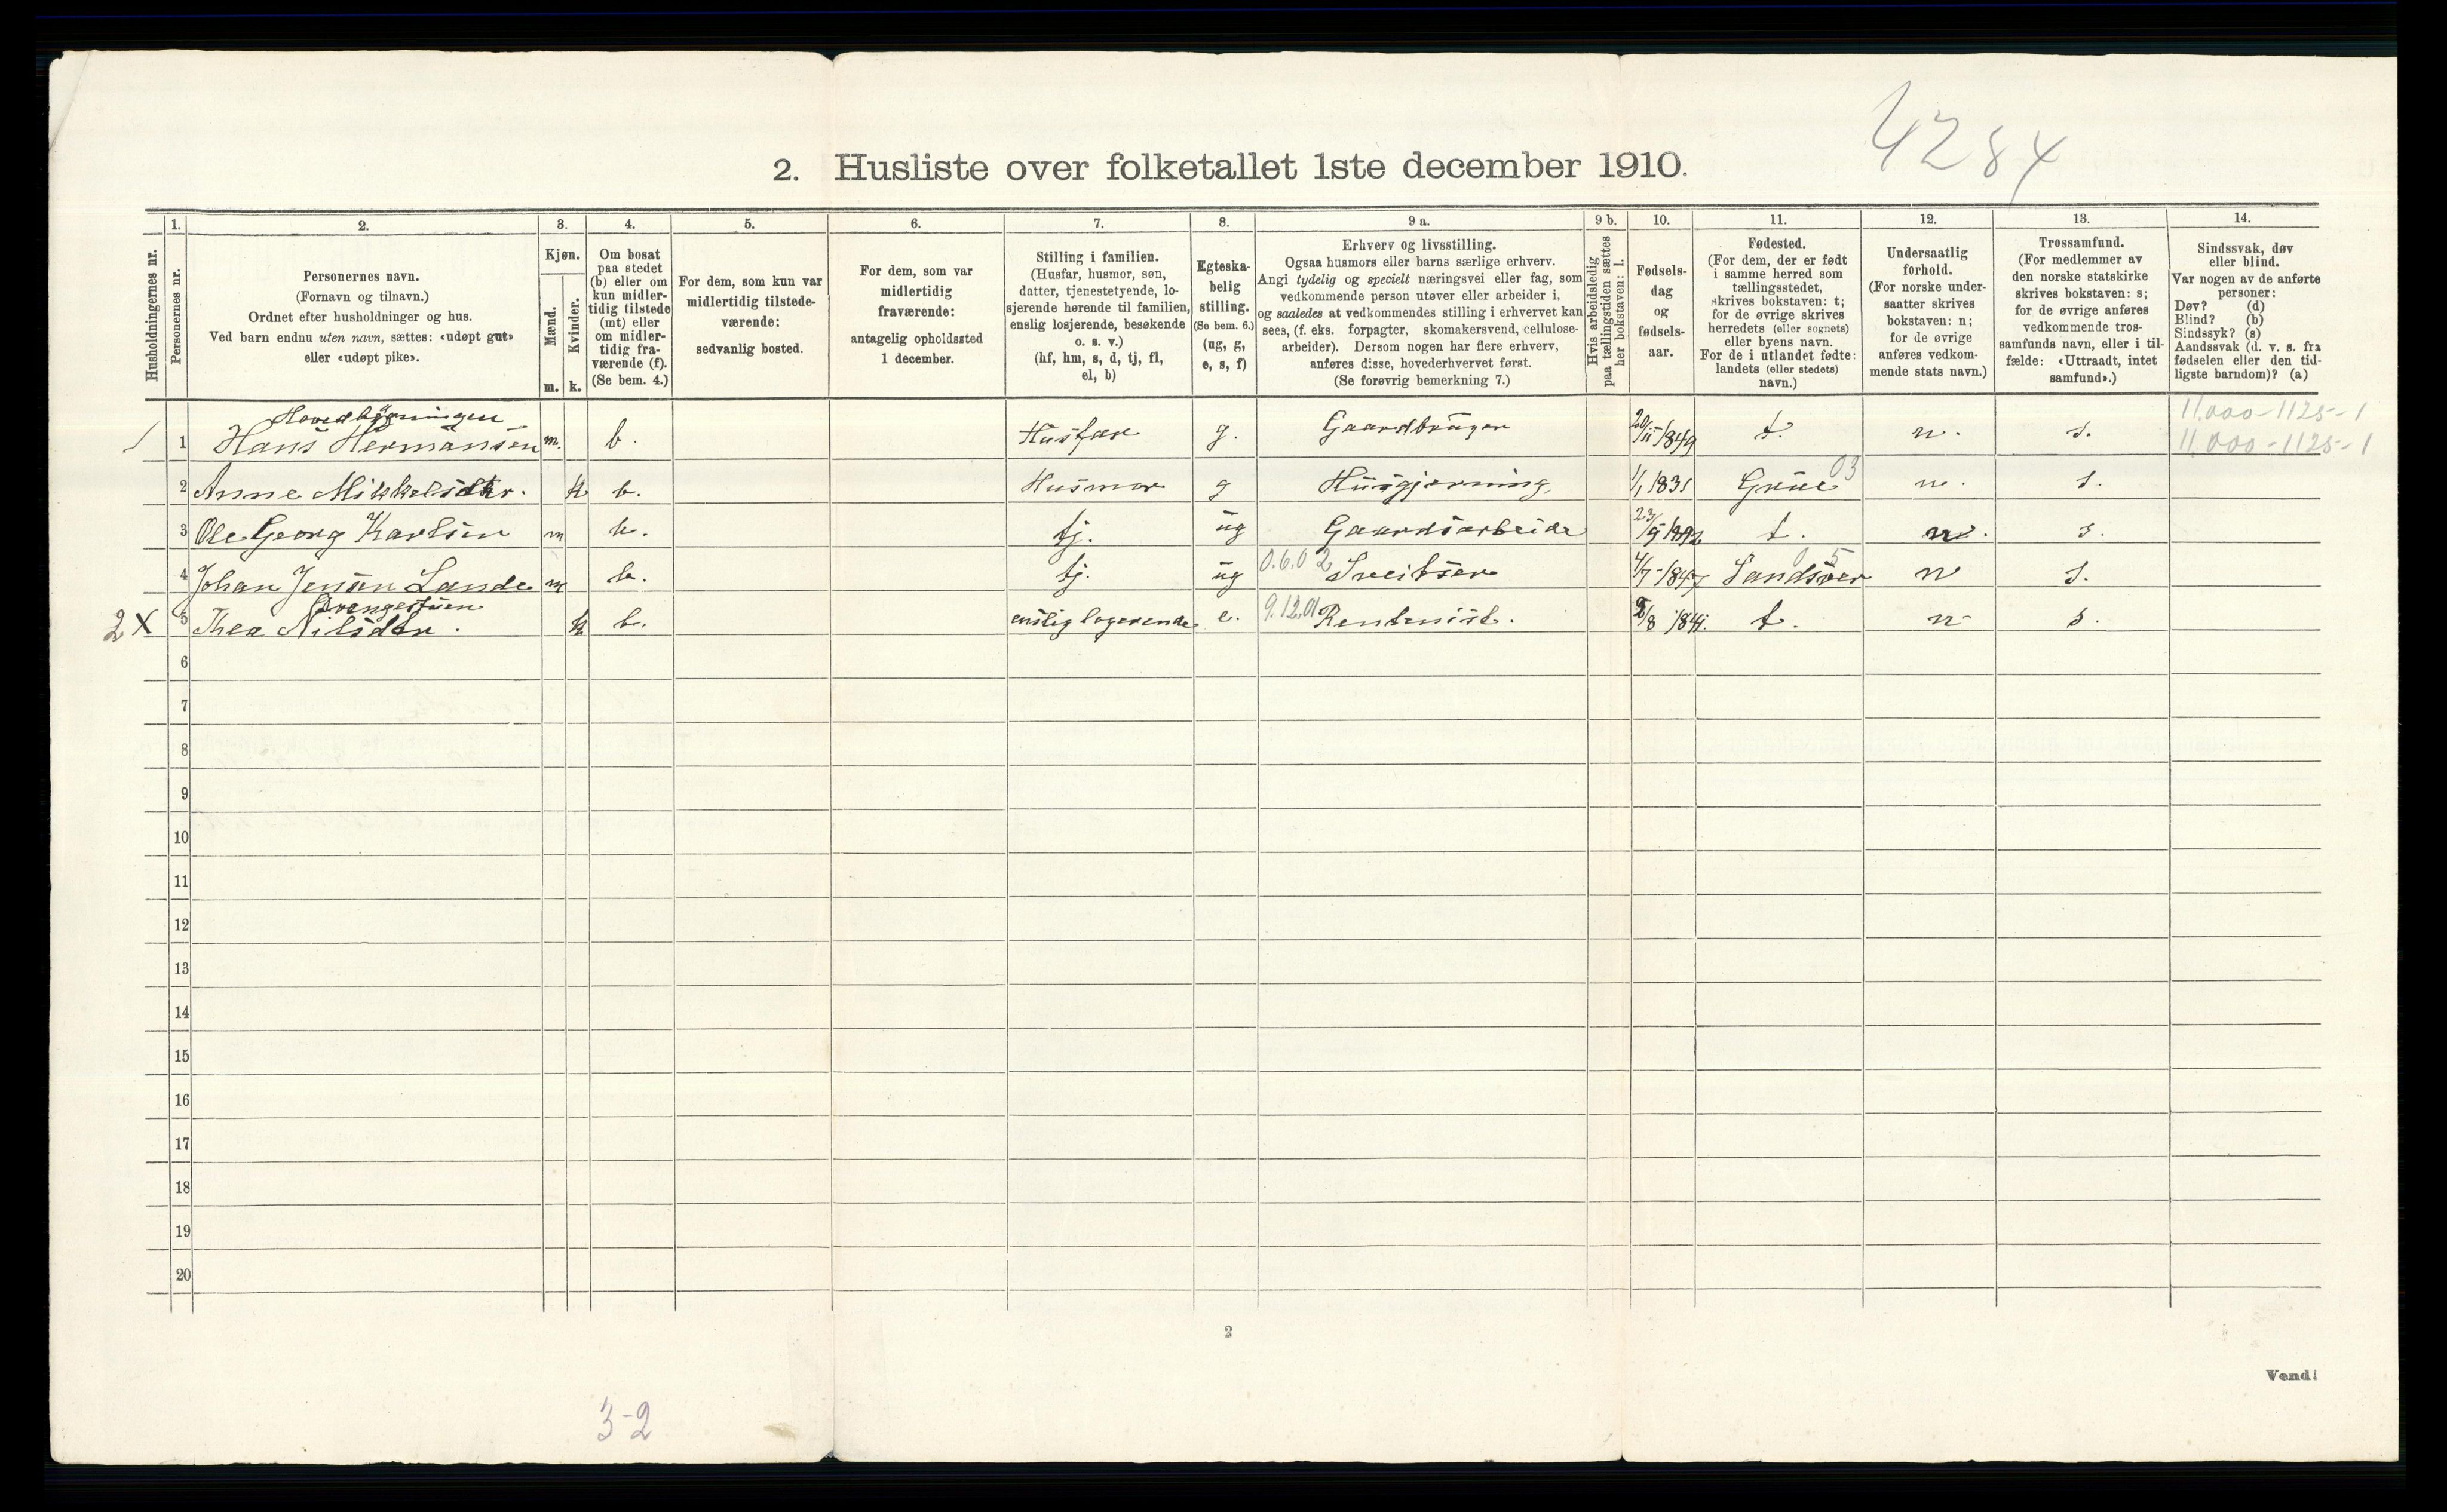 4284
2. Husliste over folketallet 1ste december 1910.
Husholdningernes nr.
1.
Personernes nr.
2.
Personernes navn.
(Fornavn og tilnavn.)
Ordnet efter husholdninger og hus.
Ved barn endnu uten navn, sættes: «udøpt gut»
eller «udøpt pike».
3.
Kjøn.
Mænd.
Kvinder.
m.
k.
4.
Om bosat
paa stedet
(b) eller om
kun midler-
tidig tilstede
(mt) eller
om midler-
tidig fra-
værende (f).
(Se bem. 4.)
5.
For dem, som kun var
midlertidig tilstede-
værende:
sedvanlig bosted.
6.
For dem, som var
midlertidig
fraværende:
antagelig opholdssted
1 december.
7.
Stilling i familien.
(Husfar, husmor, søn,
datter, tjenestetyende, lo-
sjerende hørende til familien,
enslig losjerende, besøkende
o. s. v.)
(hf, hm, s, d, tj, fl,
el, b)
8.
Egteska-
belig
stilling.
(Se bem. 6.)
(ug, g,
e, s, f)
9 a.
Erhverv og livsstilling.
Ogsaa husmors eller barns særlige erhverv.
Angi tydelig og specielt næringsvei eller fag, som
vedkommende person utøver eller arbeider i,
og saaledes at vedkommendes stilling i erhvervet kan
sees, (f. eks. forpagter, skomakersvend, cellulose-
arbeider). Dersom nogen har flere erhverv,
anføres disse, hovederhvervet først.
(Se forøvrig bemerkning 7.)
9 b.
Hvis arbeidsledig
paa tællingstiden sættes
her bokstaven: l.
10.
Fødsels-
dag
og
fødsels-
aar.
11.
Fødested.
(For dem, der er født
i samme herred som
tællingsstedet,
skrives bokstaven: t;
for de øvrige skrives
herredets (eller sognets)
eller byens navn.
For de i utlandet fødte:
landets (eller stedets)
navn.)
12.
Undersaatlig
forhold.
(For norske under-
saatter skrives
bokstaven: n;
for de øvrige
anføres vedkom-
mende stats navn.)
13.
Trossamfund.
(For medlemmer av
den norske statskirke
skrives bokstaven: s;
for de øvrige anføres
vedkommende tros-
samfunds navn, eller i til-
fælde: «Uttraadt, intet
samfund».)
14.
Sindssvak, døv
eller blind.
Var nogen av de anførte
personer:
Døv? (d)
Blind? (b)
Sindssyk? (s)
Aandssvak (d. v. s. fra
fødselen eller den tid-
ligste barndom)? (a)
Hovedbygningen
11.000-1125-1
1 Hans Hermansen m. b. Husfar g. Gaardbruger 20/11 1849 t. n. s. 11.000-1125-1
2 Anne Mikkelsdtr. k b. Husmor g Husgjerning. 1/1 1831 Grue 03 n. s.
3 Ole Georg Karlsen m b. tj. ug Gaardsarbeide t. n. s.
4 Johan Jensen Lande m b. tj. ug 0.6.02 Sveitser Sandsver 05 n s.
Drengestuen
2 X 5 Thea Nilsdtr. k b. enslig logerende e. 9.12.01 Rentenist. t. n s.
6
7
8
9
10
11
12
13
14
15
16
17
18
19
20
2
Vend!
3-2